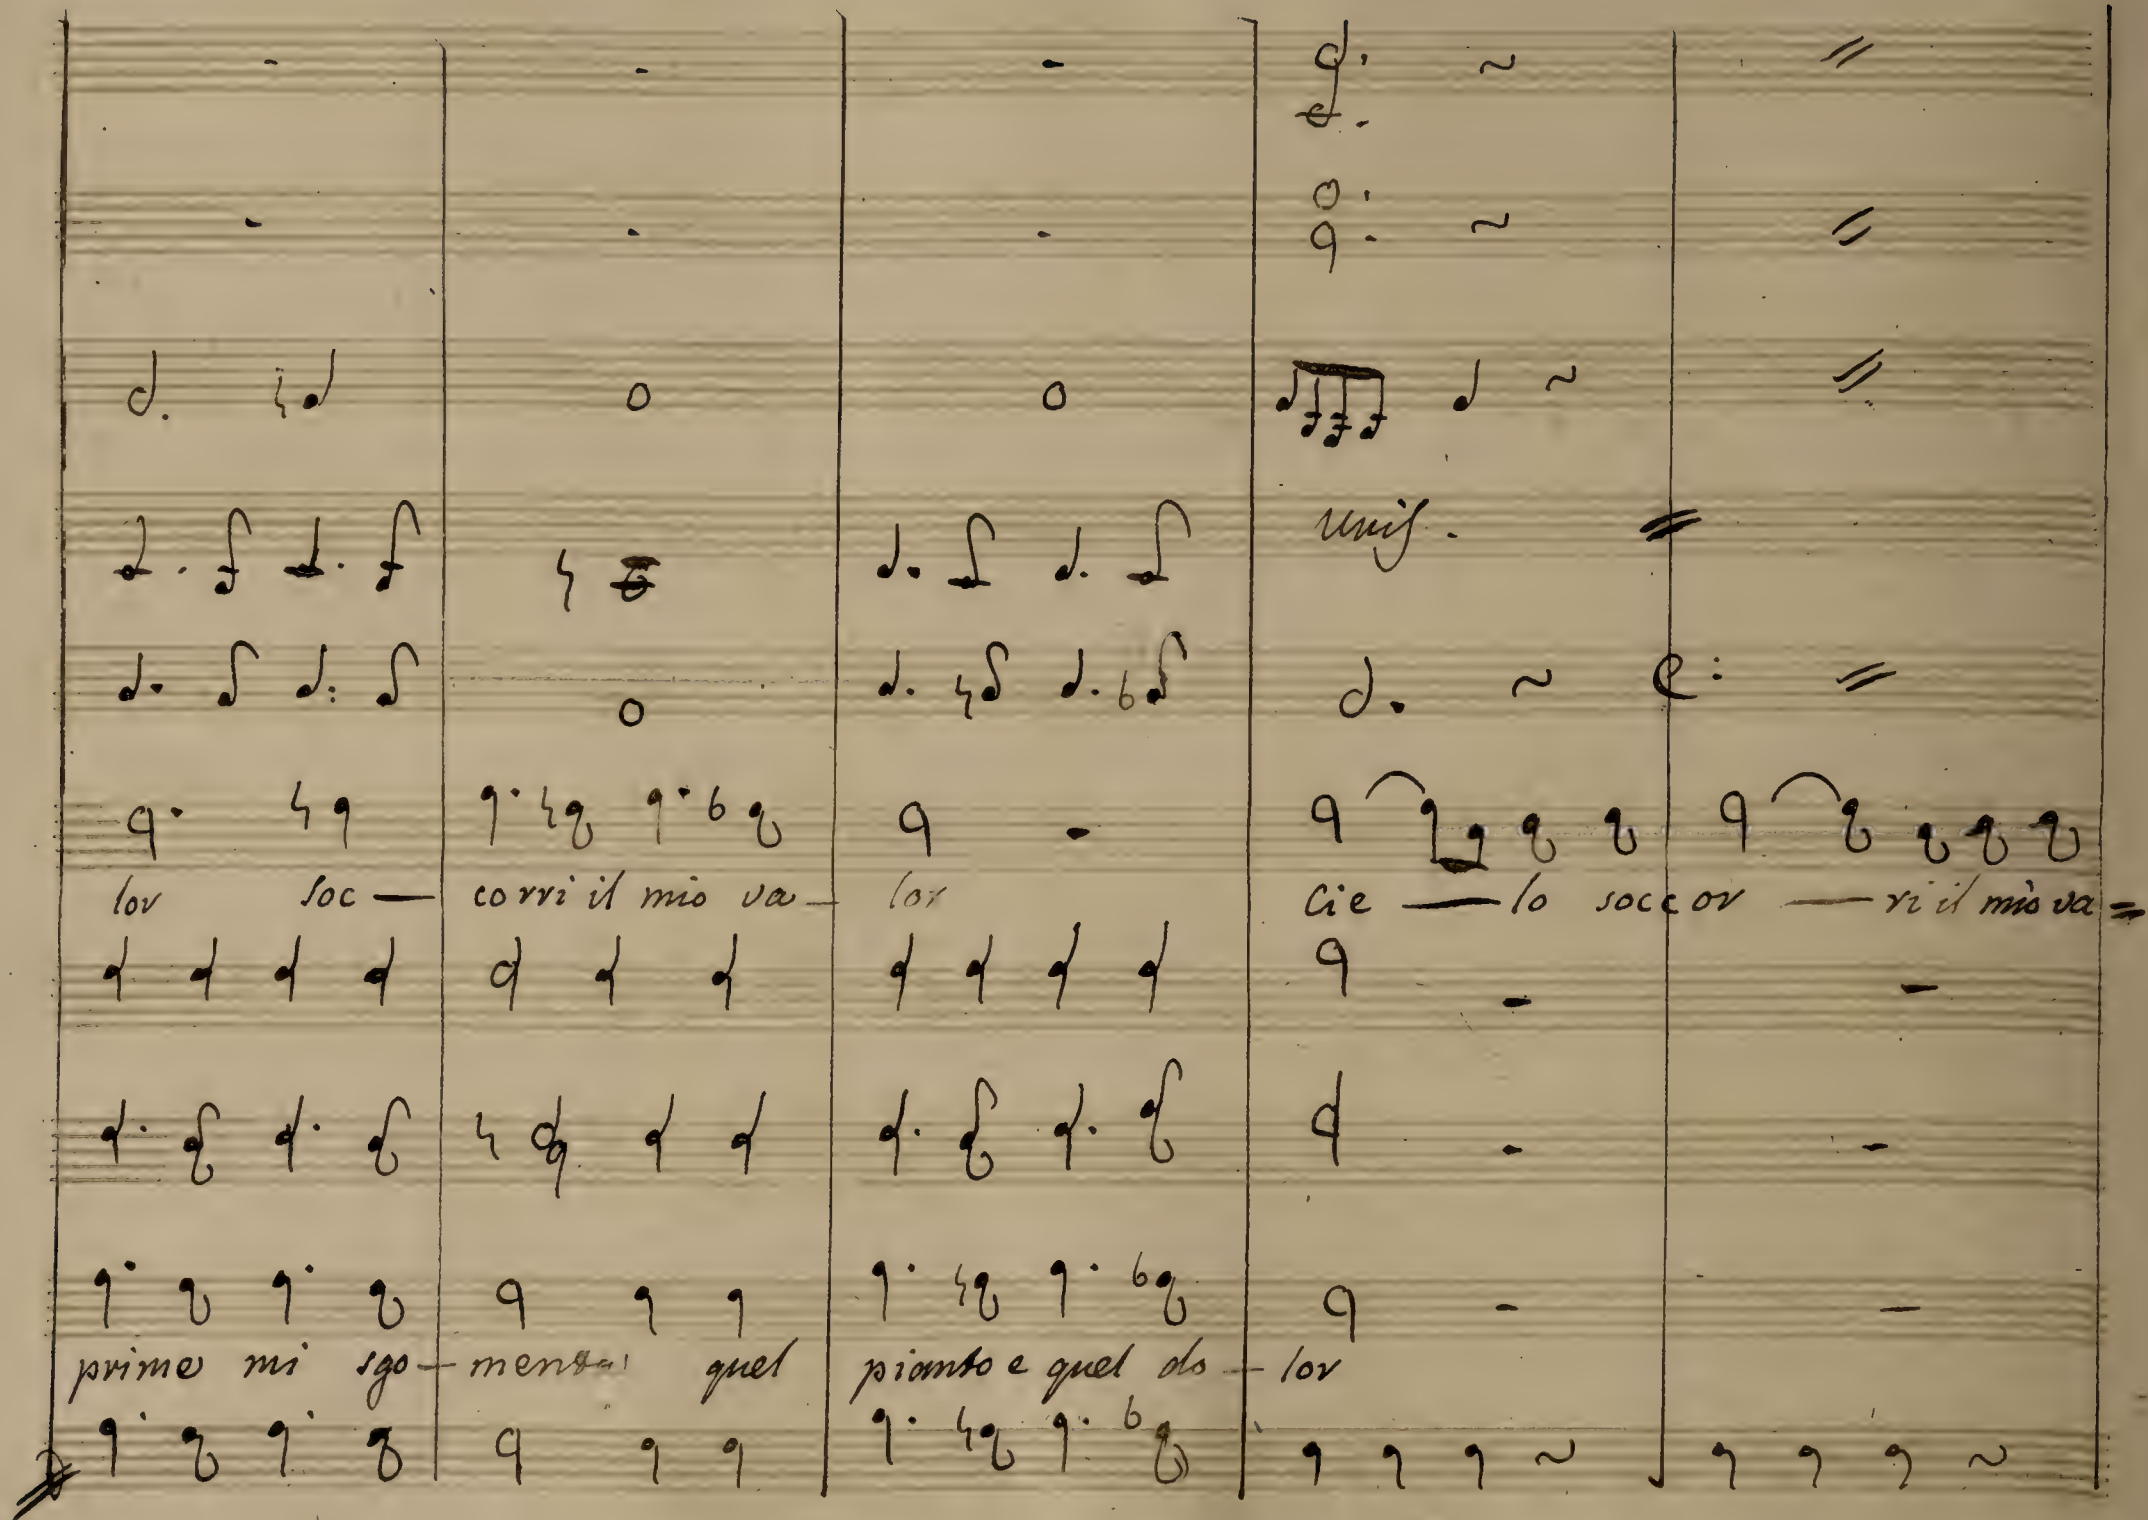 Unis.
lor soc — corri il mio va — lor Cie — lo soccor — ri il mio va =
prime mi sgo — menta quel pianto e quel do — lor